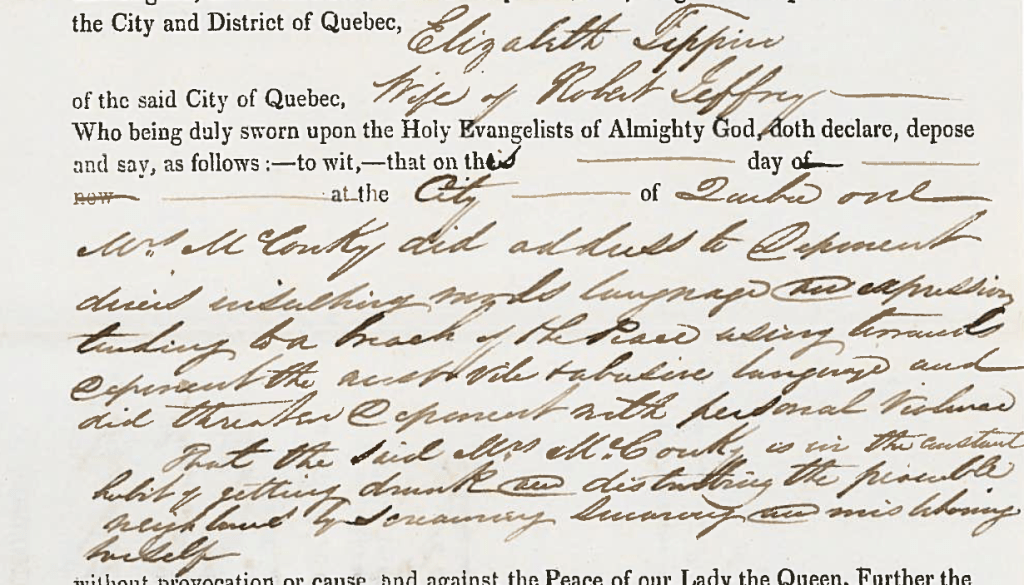 the City and District of Quebec, Elizabeth Tippin
of the said City of Quebec, Wife of Robert Jeffrey
Who being duly sworn upon the Holy Evangelists of Almighty God, doth declare, depose
and say, as follows :—to wit,—that on this day of
now at the City of Quebec one
Mrs. McConky did address to Deponent
divers insulting words language and expressions
tending to a breach of the Peace using towards
Deponent the most vile & abusive language and
did threaten Deponent with personal violence
That the said Mrs. McConky is in the constant
habit of getting drunk and disturbing the peaceable
neighbours by screaming swearing and misbehaving
herself
without provocation or cause, and against the Peace of our Lady the Queen. Further the